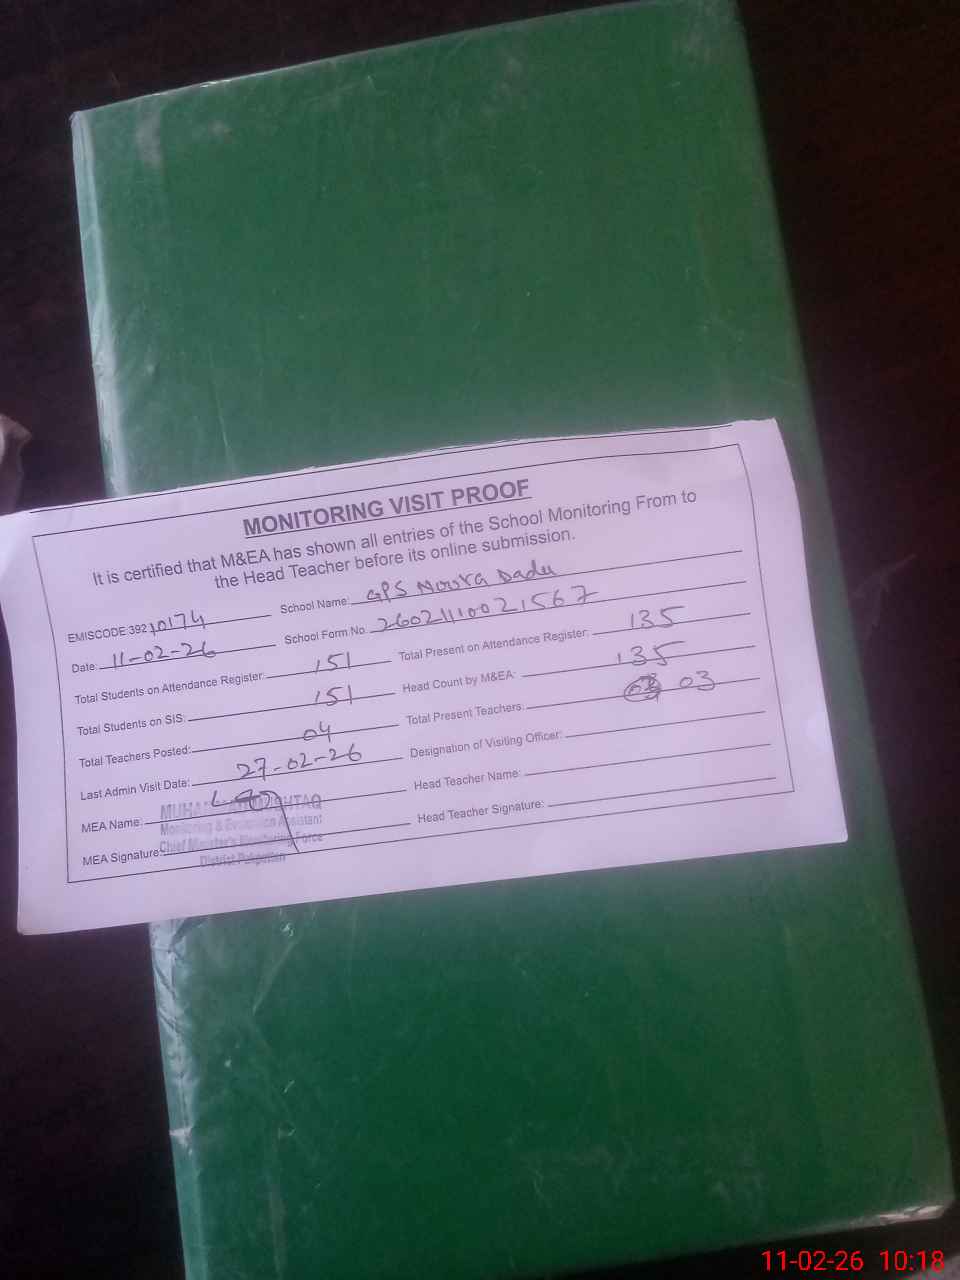 MONITORING VISIT PROOF
It is certified that M&EA has shown all entries of the School Monitoring From to
the Head Teacher before its online submission.
EMISCODE:392 10174 School Name: GPS Noora Dadu
Date: 11-02-26 School Form No. 26021110021567
Total Students on Attendance Register: 151 Total Present on Attendance Register: 135
Total Students on SIS: 151 Head Count by M&EA: 135
Total Teachers Posted: 04 Total Present Teachers: 03
Last Admin Visit Date: 27-02-26 Designation of Visiting Officer:
MEA Name: Head Teacher Name:
MEA Signature: Head Teacher Signature:
MUSHTAQ
Monitoring & Evaluation Assistant
Chief Minister's Monitoring Force
District Pakpattan
11-02-26 10:18